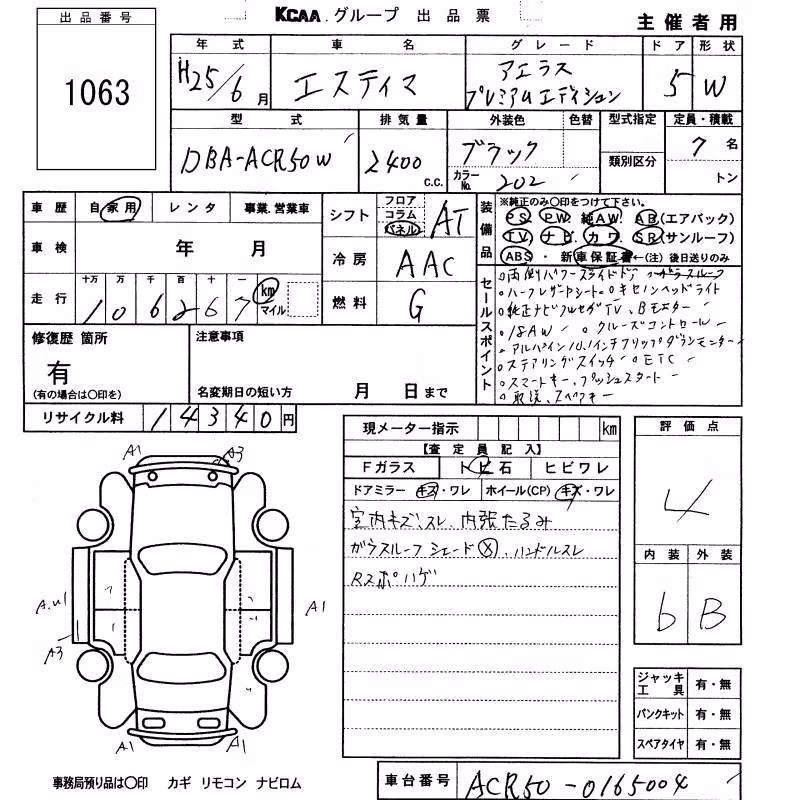 KCAA.グループ 出品票
主催者用
出品番号
1063
年式 車名 グレード ドア 形状
H25/6月 エスティマ アエラス プレミアムエディション 5 W
型式 排気量 外装色 色替 型式指定 定員・積載
DBA-ACR50W 2400c.c. ブラック カラーNo. 202 類別区分 7名
トン
車歴 自家用 レンタ 事業.営業車
シフト フロア コラム パネル AT
車検 年 月
冷房 AAC
走行 十万 万 千 百 十 一
1 0 6 2 6 7 km マイル
燃料 G
装備品
※純正のみ〇印をつけて下さい。
PS. PW. 純AW. AB.(エアバック)
TV. ナビ. カワ. SR(サンルーフ)
ABS ・ 新車保証書←(注) 後日送りのみ
セールスポイント
○両側パワースライドドア ○ガラスルーフ
○ハーフレザーシート ○キセノンヘッドライト
○純正ナビフルセグTV、Bモニター
○18AW ○クルーズコントロール
○アルパイン10.1インチフリップダウンモニター
○ステアリングスイッチ ○ETC
○スマートキー、プッシュスタート
○取説、スペアキー
修復歴 箇所
有
(有の場合は〇印を)
注意事項
名変期日の短い方 月 日まで
リサイクル料 14340円
現メーター指示 km
【査定員記入】
Fガラス トビ石 ヒビワレ
ドアミラー キズ・ワレ ホイール(CP) キズ・ワレ
室内キズ、スレ、内張たるみ
ガラスルーフシェードⓧ、ハンドルスレ
Rスポハゲ
評価点
4
内装 外装
b B
A1 A3
A.U1
A3
A1
A1 A1
ジャッキ工具 有・無
パンクキット 有・無
スペアタイヤ 有・無
事務局預り品は〇印 カギ リモコン ナビロム
車台番号 ACR50-0165004